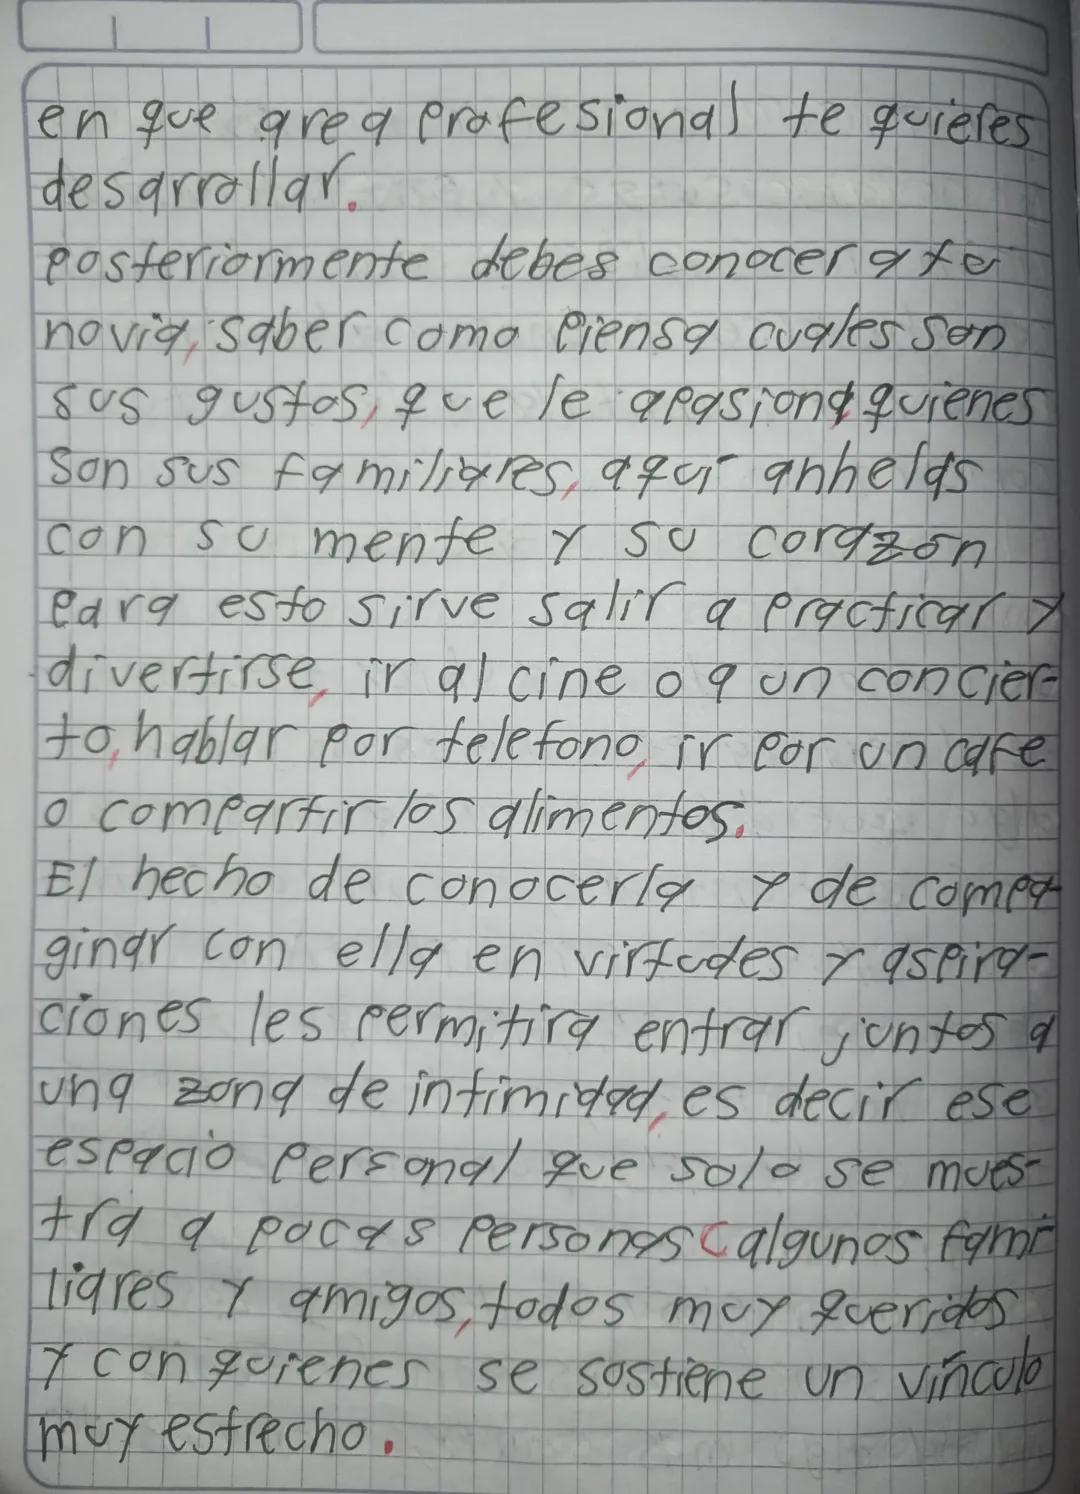 en que area profesional te quieres
desarrollar.
posteriormente debes conocer a te
novia, saber como piensa cuales son
sus gustos, que le apasiona, quienes
son sus familiares, aqui anhelas
con su mente y su corazón
para esto sirve salir a practicar y
divertirse, ir al cine o a un concier-
to, hablar por telefono, ir por un cafe
o compartir los alimentos.
El hecho de conocerla y de compa-
ginar con ella en virtudes y aspira-
ciones les permitira entrar juntos a
una zona de intimidad, es decir ese
espacio personal que solo se mues-
tra a pocas personas (algunos fami-
liares y amigos, todos muy queridos
y con quienes se sostiene un vinculo
muy estrecho.